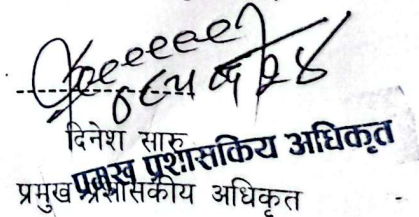 दिनेश सारु
प्रमुख प्रशासकिय अधिकृत
प्रमुख प्रशासकीय अधिकृत